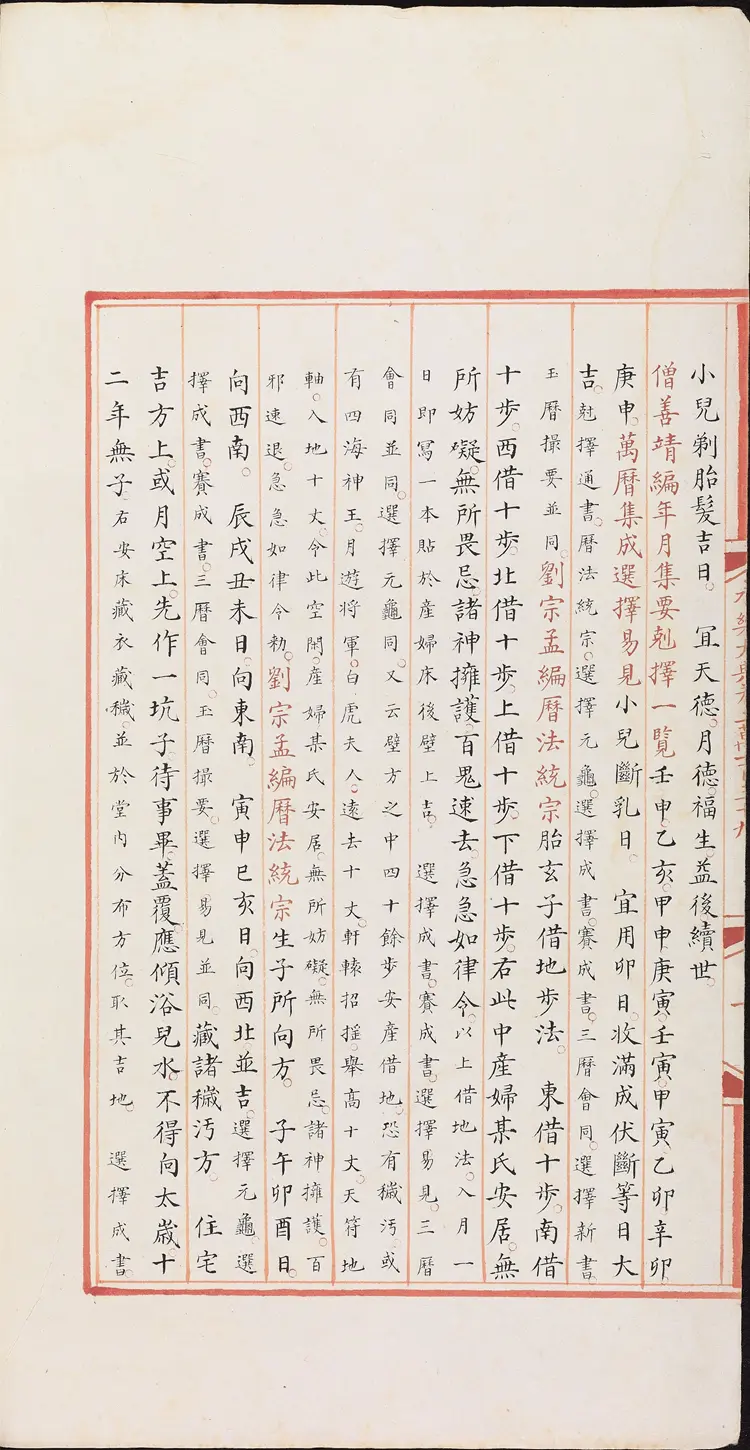 小兒剃胎髮吉日。　宜天德。月德。福生。益後。續世。
僧善靖編年月集要剋擇一覽壬申。乙亥。甲申。庚寅。壬寅。甲寅。乙卯。辛卯。
庚申。萬曆集成選擇易見小兒斷乳日。　宜用卯日。收滿成伏斷等日大
吉。剋擇通書。曆法統宗。選擇元龜。選擇成書。賽成書。三曆會同。選擇新書。
玉曆撮要並同。劉宗孟編曆法統宗胎玄子借地步法。　東借十步。南借
十步。西借十步。北借十步。上借十步。下借十步。右此中產婦某氏安居。無
所妨礙。無所畏忌。諸神擁護。百鬼速去。急急如律令。以上借地法。入月一
日即寫一本貼於產婦床後壁上吉。　選擇成書。賽成書。選擇易見。三曆
會同並同。選擇元龜同。又云壁方之中四十餘步安產借地。恐有穢汚。或
有四海神王。月遊將軍。白虎夫人。遠去十丈。軒轅招搖。舉高十丈。天符地
軸。入地十丈。今此空閑。產婦某氏安居。無所妨礙。無所畏忌。諸神擁護。百
邪速退。急急如律令勑。劉宗孟編曆法統宗生子所向方。　子午卯酉日。
向西南。　辰戌丑未日。向東南。　寅申巳亥日。向西北。並吉。選擇元龜。選
擇成書。賽成書。三曆會同。玉曆撮要。選擇易見並同。藏諸穢汚方。　住宅
吉方上。或月空上。先作一坑子。待事畢。蓋覆。應傾浴兒水。不得向太歲。十
二年無子。右安床藏衣藏穢。並於堂內分布方位。取其吉地。　選擇成書。